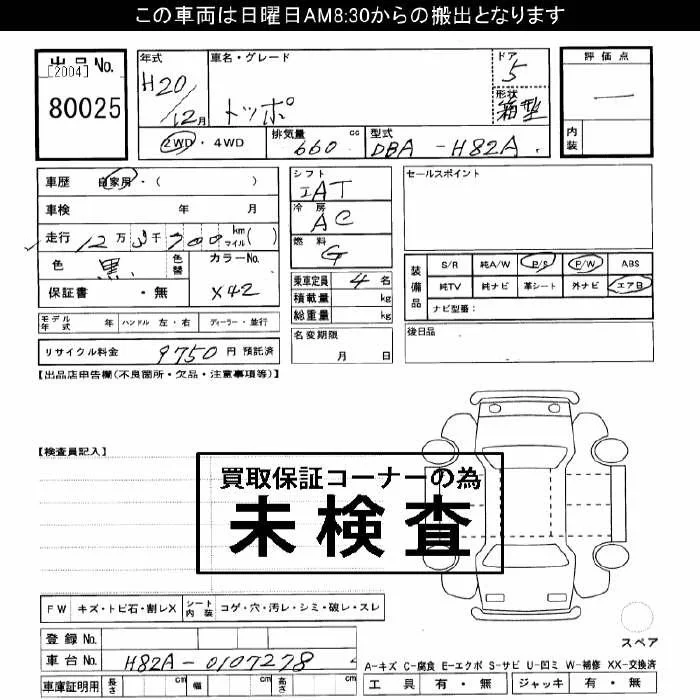 この車両は日曜日AM8:30からの搬出となります
出品No.
[2004]
80025
年式
H20/12月
車名・グレード
トッポ
ドア
5
形状
箱型
評価点
—
内装
2WD・4WD
排気量 660 cc
型式 DBA-H82A
車歴 自家用・( )
車検 年 月
走行 12万3千700 km マイル( )
色 黒 色替
カラーNo. X42
保証書 ・無
モデル年式 年 ハンドル 左・右 ディーラー・並行
リサイクル料金 9750 円 預託済
シフト
IAT
冷房
AC
燃料
G
乗車定員 4 名
積載量 kg
総重量 kg
名変期限
月 日
セールスポイント
装備品
S/R 純A/W P/S P/W ABS
純TV 純ナビ 革シート 外ナビ エアB
ナビ型番:
後日品
【出品店申告欄(不良箇所・欠品・注意事項等)】
【検査員記入】
買取保証コーナーの為
未検査
FW キズ・トビ石・割レX シート内装 コゲ・穴・汚レ・シミ・破レ・スレ
登録No.
車台No. H82A-0107278
車庫証明用 長さ cm 幅 cm 高さ cm
スペア
A-キズ C-腐食 E-エクボ S-サビ U-凹ミ W-補修 XX-交換済
工具 有・無 ジャッキ 有・無